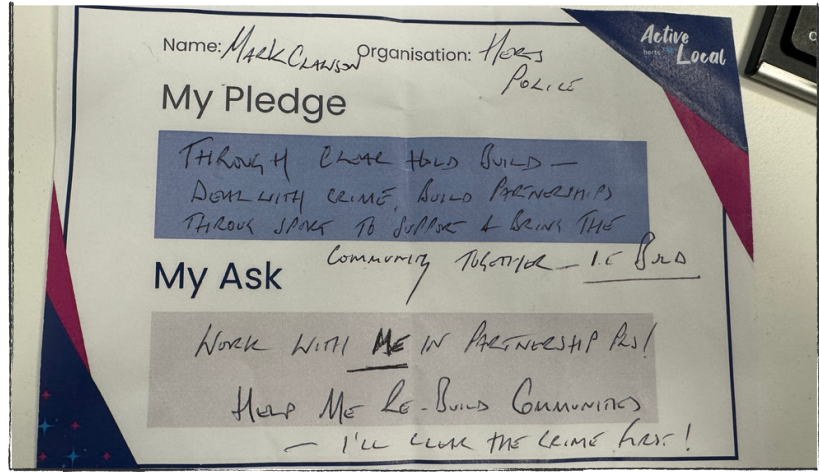 Active
herts Local
Name: MARK CLAWSON Organisation: HERTS
POLICE
My Pledge
THROUGH CLEAR HOLD BUILD —
DEAL WITH CRIME, BUILD PARTNERSHIPS
THROUG SPORT TO SUPPORT & BRING THE
COMMUNITY TOGETHER — I.E BUILD
My Ask
WORK WITH ME IN PARTNERSHIP PLS!
HELP ME RE-BUILD COMMUNITIES
— I'LL CLEAR THE CRIME FIRST!